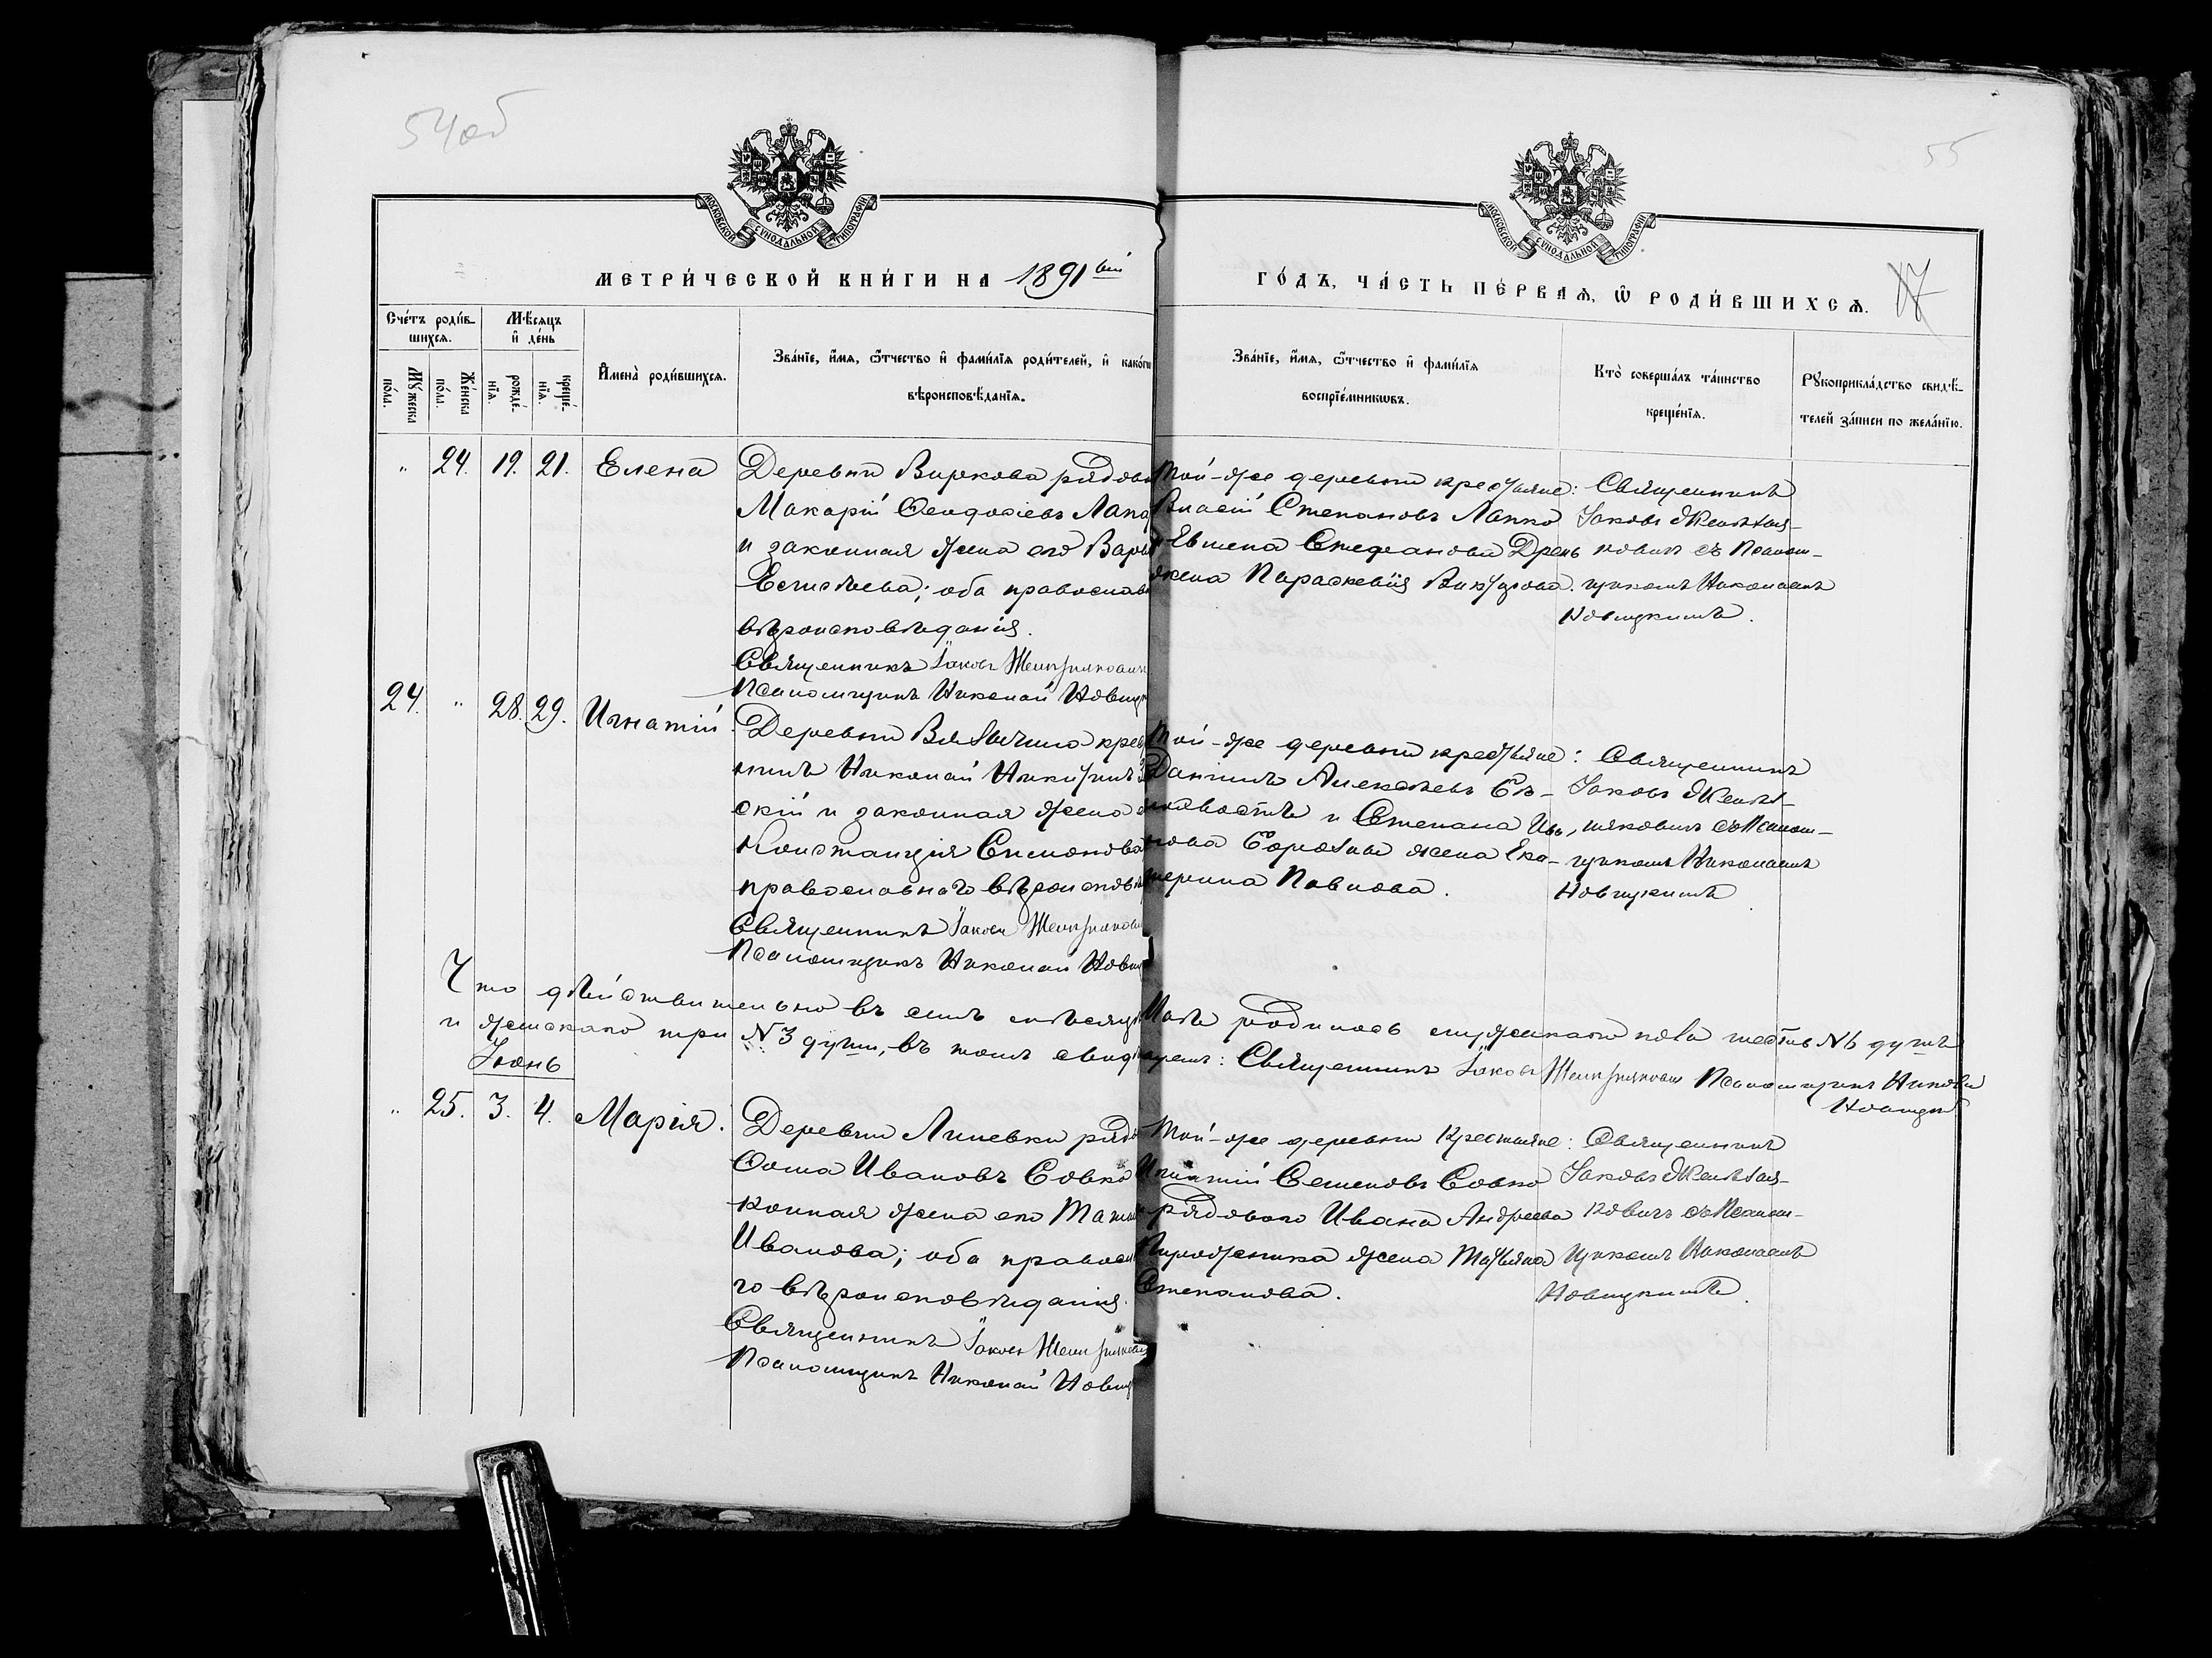 54об
55
МОСКОВСКОЙ СѴНОДАЛЬНОЙ ТИПОГРАФІИ
МОСКОВСКОЙ СѴНОДАЛЬНОЙ ТИПОГРАФІИ
МЕТРИ́ЧЕСКОЙ КНИ́ГИ НА 1891 ый
ГО́ДЪ, ЧА́СТЬ ПЕ́РВАѦ, Ѡ҆ РОДИ́ВШИХСѦ.
17
Сче́тъ роди́в-
шихсѧ.
Мѹ́жеска по́ла.
Же́нска по́ла.
Мѣ́сѧцъ и҆ де́нь
рожде́-
нїѧ.
креще́-
нїѧ.
И҆мена̀ роди́вшихсѧ.
Зва́нїе, и҆́мѧ, ѻ҆́тчество и҆ фами́лїѧ роди́телей, и҆ како́гѡ
вѣроисповѣ́данїѧ.
Зва́нїе, и҆́мѧ, ѻ҆́тчество и҆ фами́лїѧ
воспрїе́мникѡвъ.
Кто̀ соверша́лъ та́инство
креще́нїѧ.
Рѹкоприкла́дство свидѣ́-
телей за́писи по жела́нїю.
" 24. 19. 21. Елена
Деревни Виркова рядов
Макарій Ѳеодосіевъ Лапо
и законная жена его Варв
Елисѣева; оба православ
вѣроисповѣданія.
Священникъ Іаковъ Желѣзняковичъ
Псаломщикъ Николай Новиц
Той-же деревни крестьяне:
Власій Степановъ Лаппо
и Евмена Стефанова Дрень
жена Параскевія Викторова.
Священникъ
Іаковъ Желѣзня-
ковичъ съ Псалом-
щикомъ Николаемъ
Новицкимъ.
24. " 28. 29. Игнатій
Деревни крес
Николай Никитинъ
скій и законная жена е
Констанція Симонова
православнаго вѣроисповѣ
Священникъ Іаковъ Желѣзнякови
Псаломщикъ Николай Новиц
Той-же деревни крестьяне:
Даніилъ Алексѣевъ
и Степана Ива-
нова жена Ека-
терина Павлова.
Священникъ
Іаковъ Желѣз-
няковичъ съ Псалом-
щикомъ Николаемъ
Новицкимъ
Что дѣйствительно въ семъ мѣсяцѣ Маѣ родилось мужескаго пола шесть № 6 душъ
и женскаго три № 3 души, въ томъ свидѣтельствуемъ: Священникъ Іаковъ Желѣзняковичъ Псаломщикъ Николай
Новицкій
Іюнь
" 25. 3. 4. Марія.
Деревни Липевки рядо
Ѳома Ивановъ Совко
конная жена его Татья
Иванова; оба правосл
го вѣроисповѣданія.
Священникъ Іаковъ Желѣзнякович
Псаломщикъ Николай Новиц
Той-же деревни крестьяне:
Игнатій Семеновъ Совко
рядового Ивана Андреева
Пирожника жена Татьяна
Степанова.
Священникъ
Іаковъ Желѣзня-
ковичъ съ Псалом-
щикомъ Николаемъ
Новицкимъ.